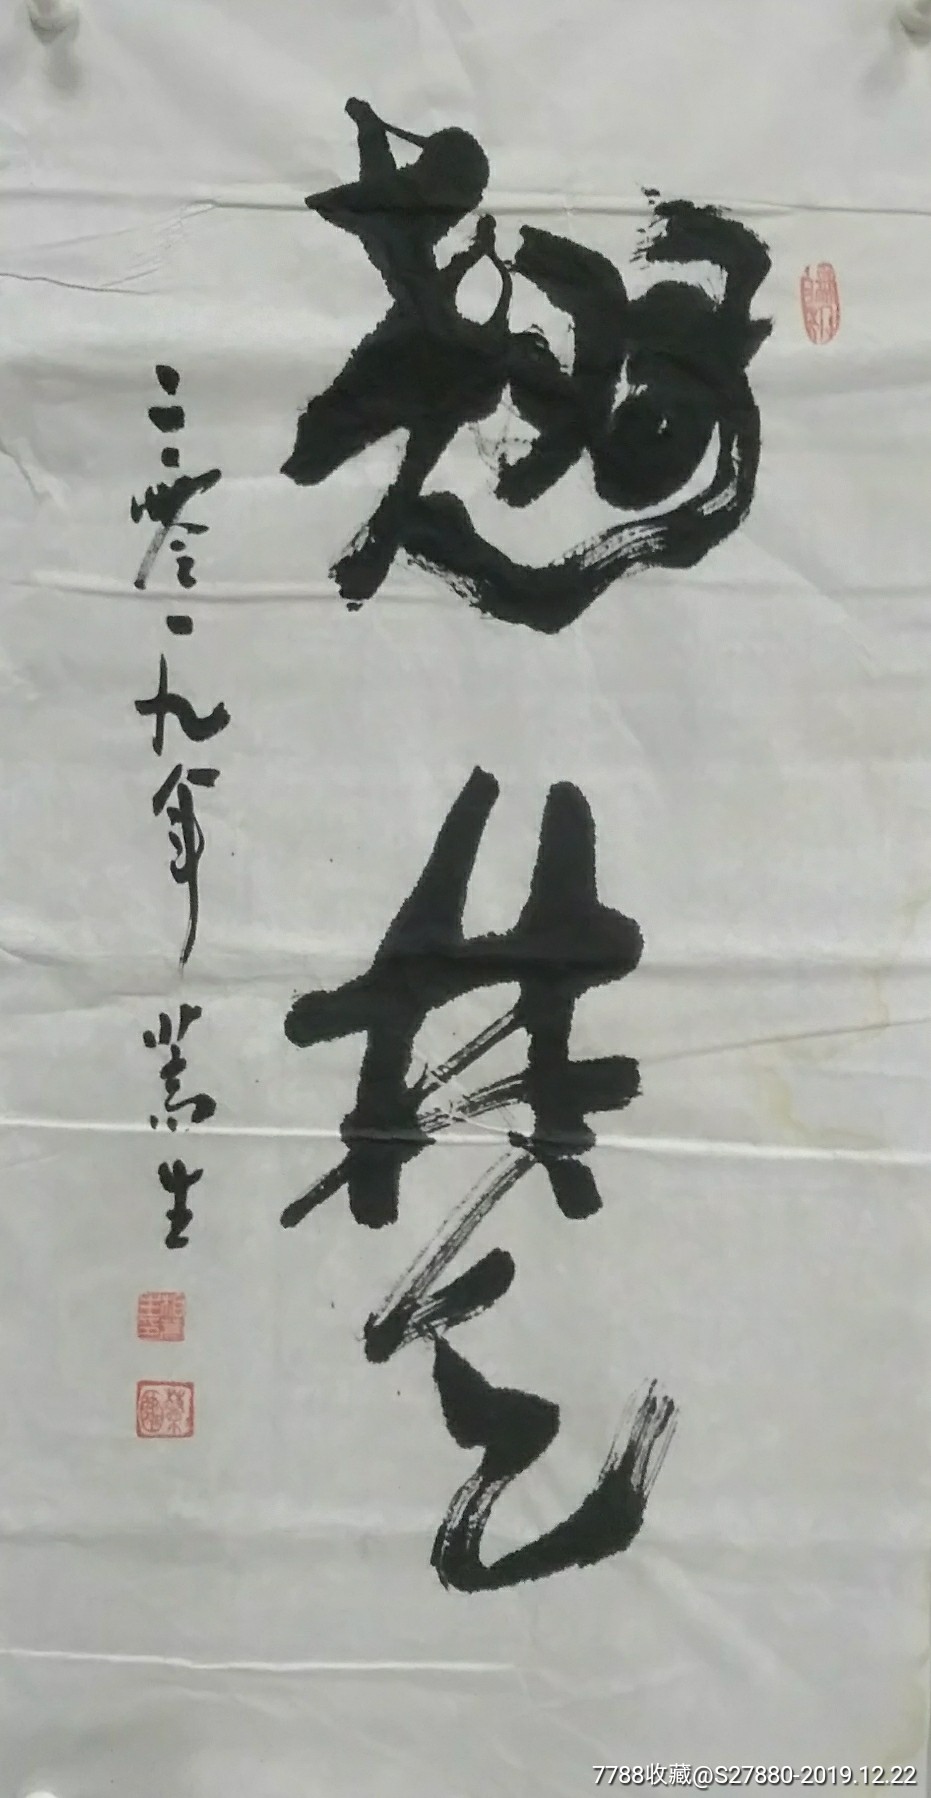 翹楚
二零一九年 嵩生
7788收藏@S27880-2019.12.22